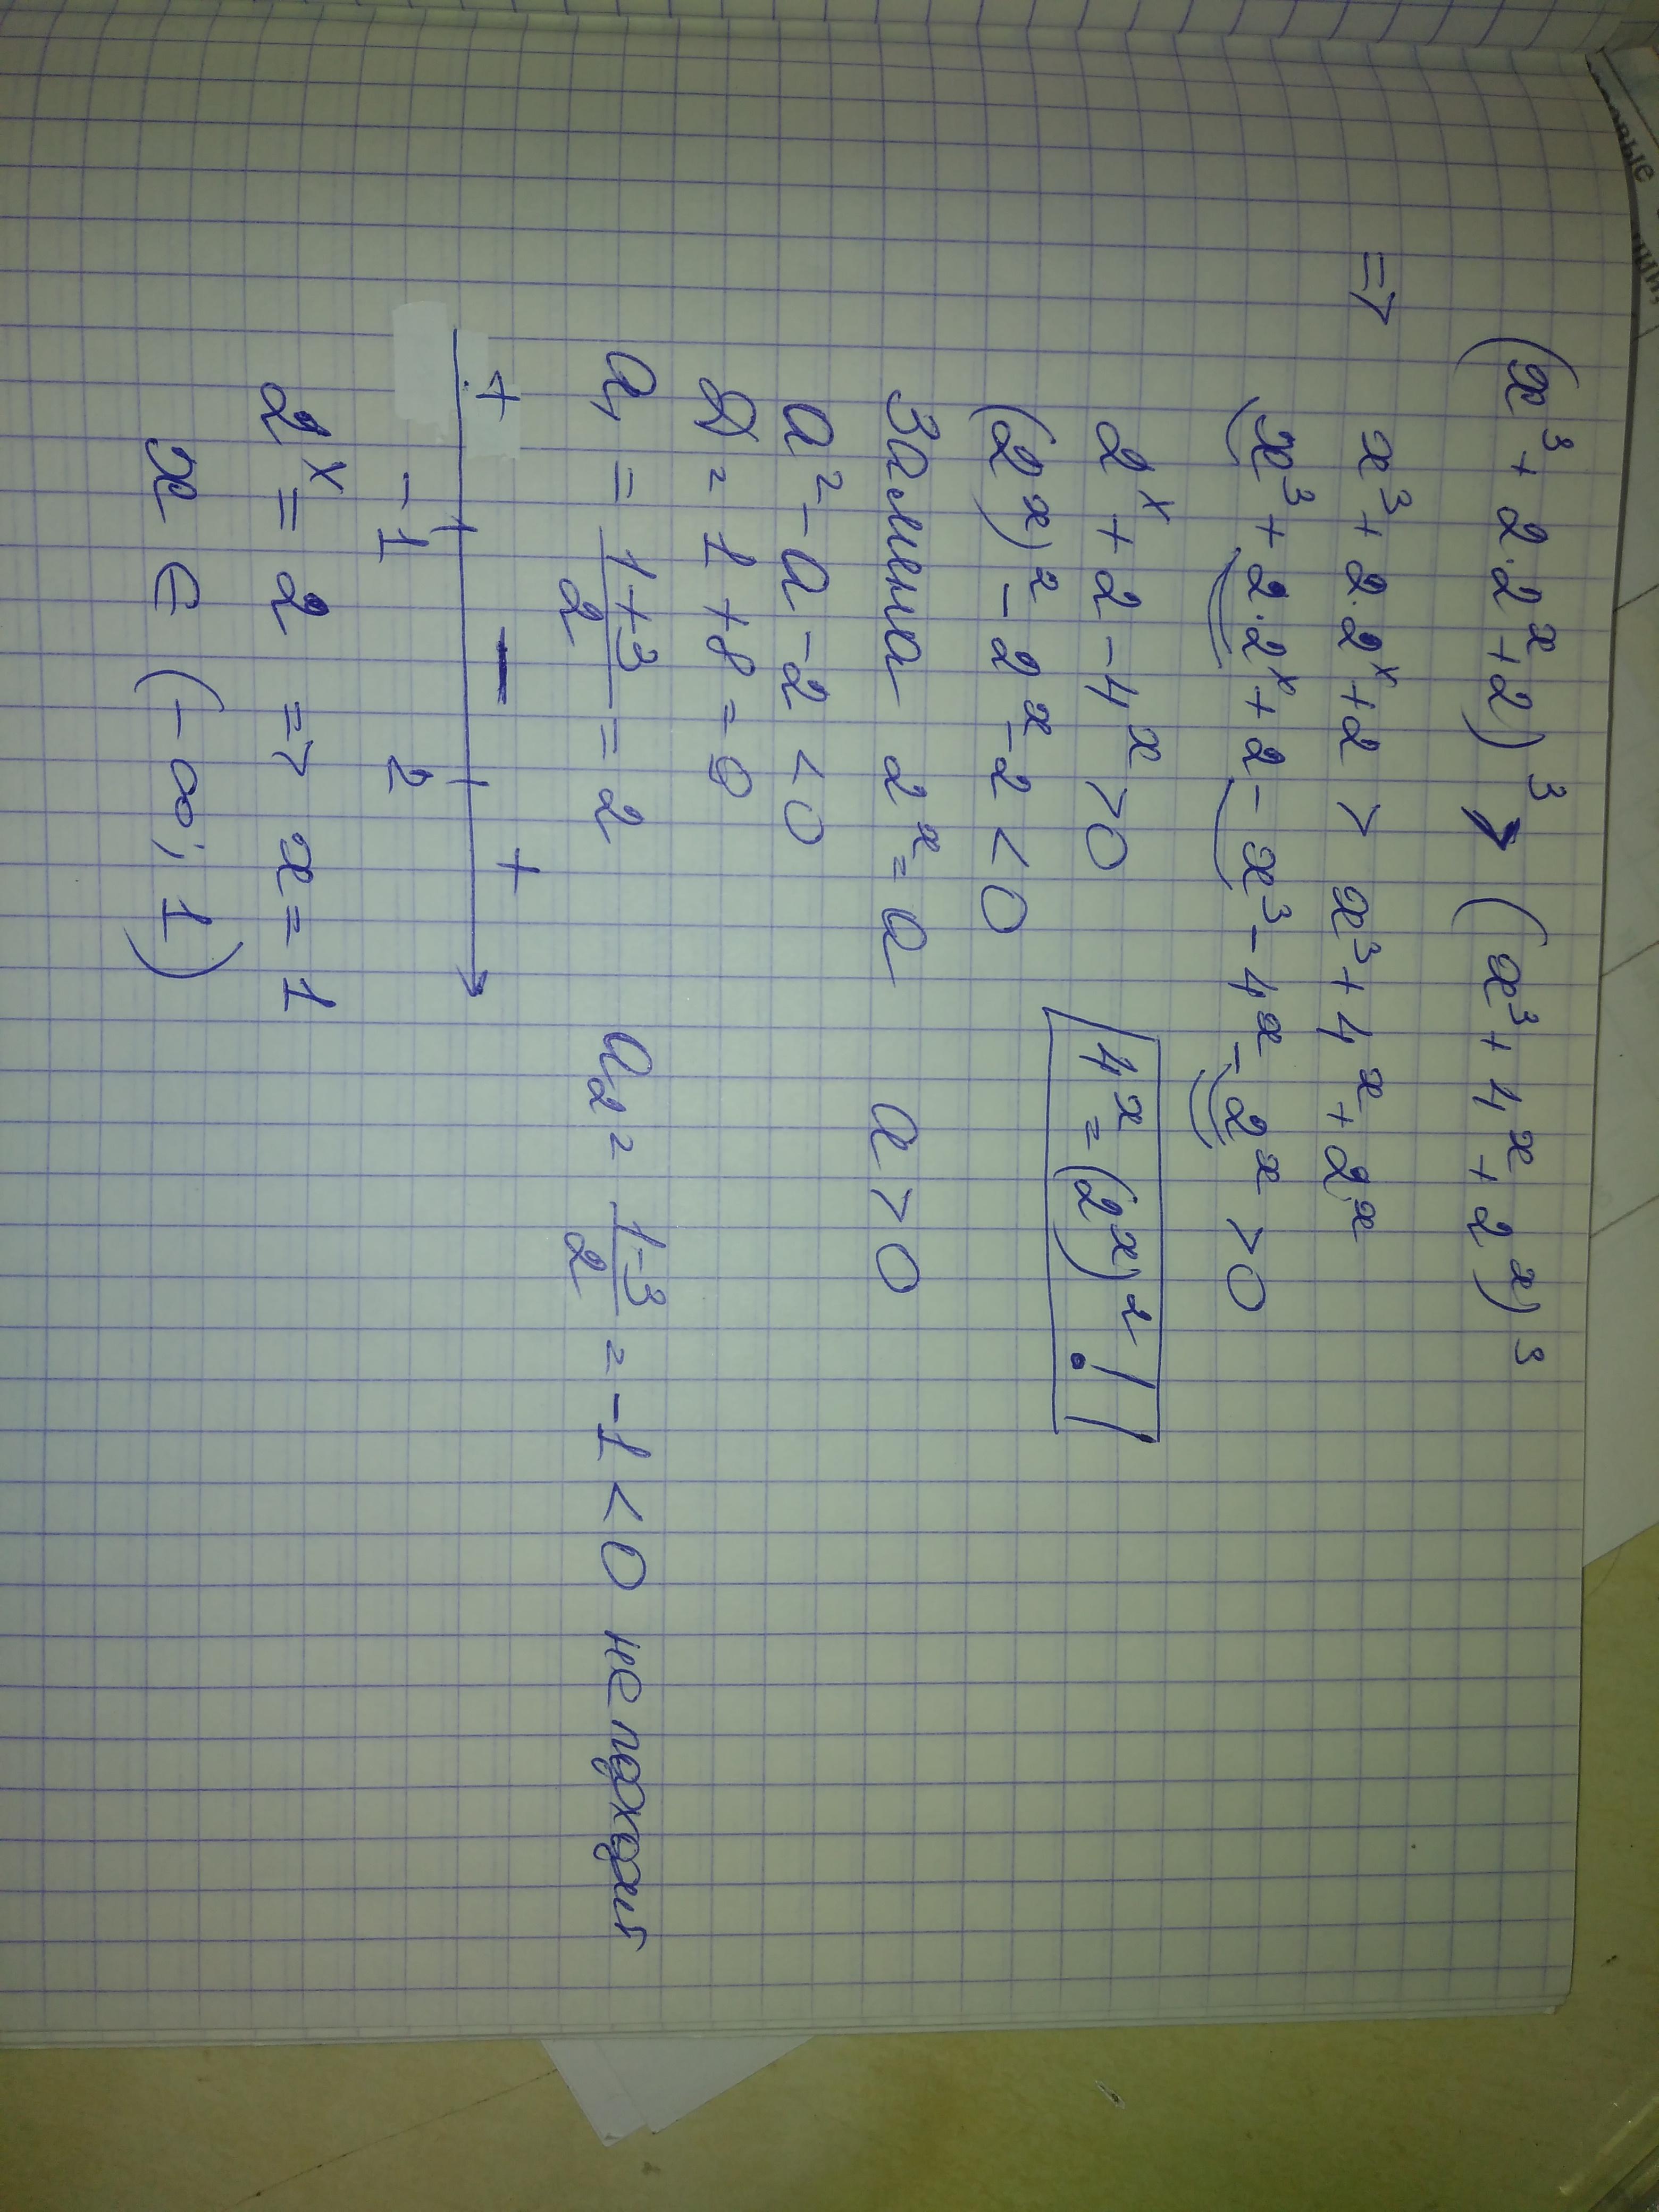 (x³ + 2·2ˣ + 2)³ > (x³ + 4ˣ + 2ˣ)³
=> x³ + 2·2ˣ + 2 > x³ + 4ˣ + 2ˣ
x³ + 2·2ˣ + 2 - x³ - 4ˣ - 2ˣ > 0
2ˣ + 2 - 4ˣ > 0 4ˣ = (2ˣ)² !
(2ˣ)² - 2ˣ - 2 < 0
Замена 2ˣ = a a > 0
a² - a - 2 < 0
D = 1 + 8 = 9
a₁ = (1+3)/2 = 2 a₂ = (1-3)/2 = -1 < 0 не подходит
+ - +
-1 2
2ˣ = 2 => x = 1
x ∈ (-∞; 1)